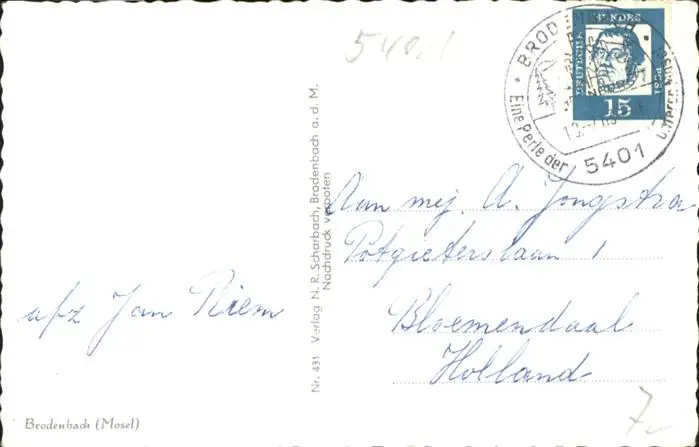 540,1
BRODENBACH
Eine Perle der
unteren Mosel
5401
DEUTSCHE
BUNDES
POST
15
Nr. 431 Verlag N. R. Scharbach, Brodenbach a. d. M.
Nachdruck verboten
Aan mej. A. Jongstra
Potgieterslaan 1
Bloemendaal
Holland
afz Jan Riem
Brodenbach (Mosel)
7